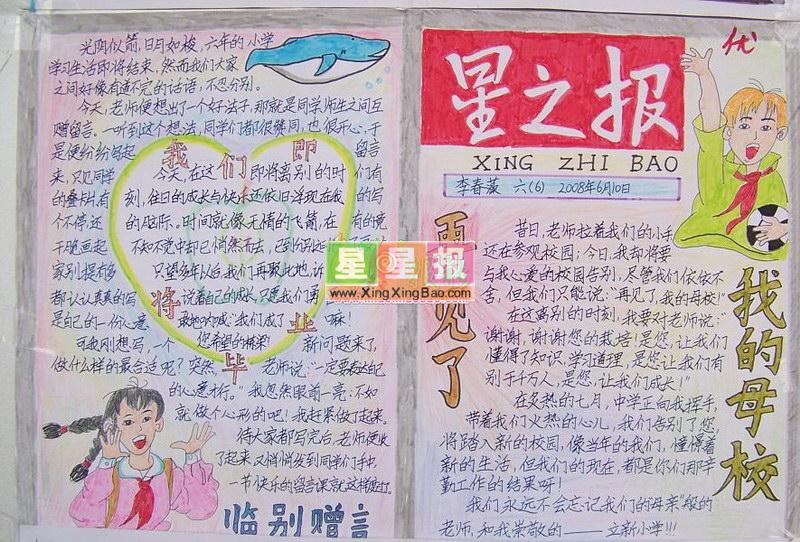 光阴似箭，日月如梭，六年的小学
学习生活即将结束，然而我们大家
之间好像有道不完的话语，不忍分别。
今天，老师便想出了一个好法子，那就是同学师生之间互
赠留言。一听到这个想法，同学们都很赞同，也很开心，于
是便纷纷写起
留言
来，只见同学
们有
的叠卡片有
的写
个不停，还
有的竟
干脆画起
家别提有多
都认认真真的写
是自己的一份心意
可我刚想写，一个
新问题来了，
做什么样的最合适呢？突然，
老师说：“一定要有达己
的心意才行。”我忽然眼前一亮：不如
就做个心形的吧！我赶紧做了起来。
待大家都写完后，老师便收
了起来又悄悄发到同学们手中。
一节快乐的留言课就这样度过。
我们即将毕业
今天，在这即将离别的时
刻，往日的成长与快乐还依旧浮现在我
的脑际。时间就像无情的飞箭，在
不知不觉中却已悄然
只望多年以后，我们再聚此地，
说着自己的成长，只要我们勇
敢地呐喊：“我们成了
嘛！
临别赠言
星之报
XING ZHI BAO
六(6) 2008年6月10日
优
再见了
我的母校
昔日，老师拉着我们的小手
还在参观校园；今日，我却将要
与我心爱的校园告别，尽管我们依依不
舍，但我们只能说：“再见了，我的母校！”
在这离别的时刻，我要对老师说：“
谢谢，谢谢您的栽培！是您，让我们
懂得了知识，学习道理，是您让我们有
别于千万人，是您，让我们成长！”
在炙热的七月，中学正向我挥手，
带着我们火热的心儿，我们告别了您，
将踏入新的校园，像当年的我们，憧憬着
新的生活，但我们的现在，都是你们那辛
勤工作的结果呀！
我们永远不会忘记我们的母亲”般的
老师，和我崇敬的——立新小学!!!
星星报
www.XingXingBao.com